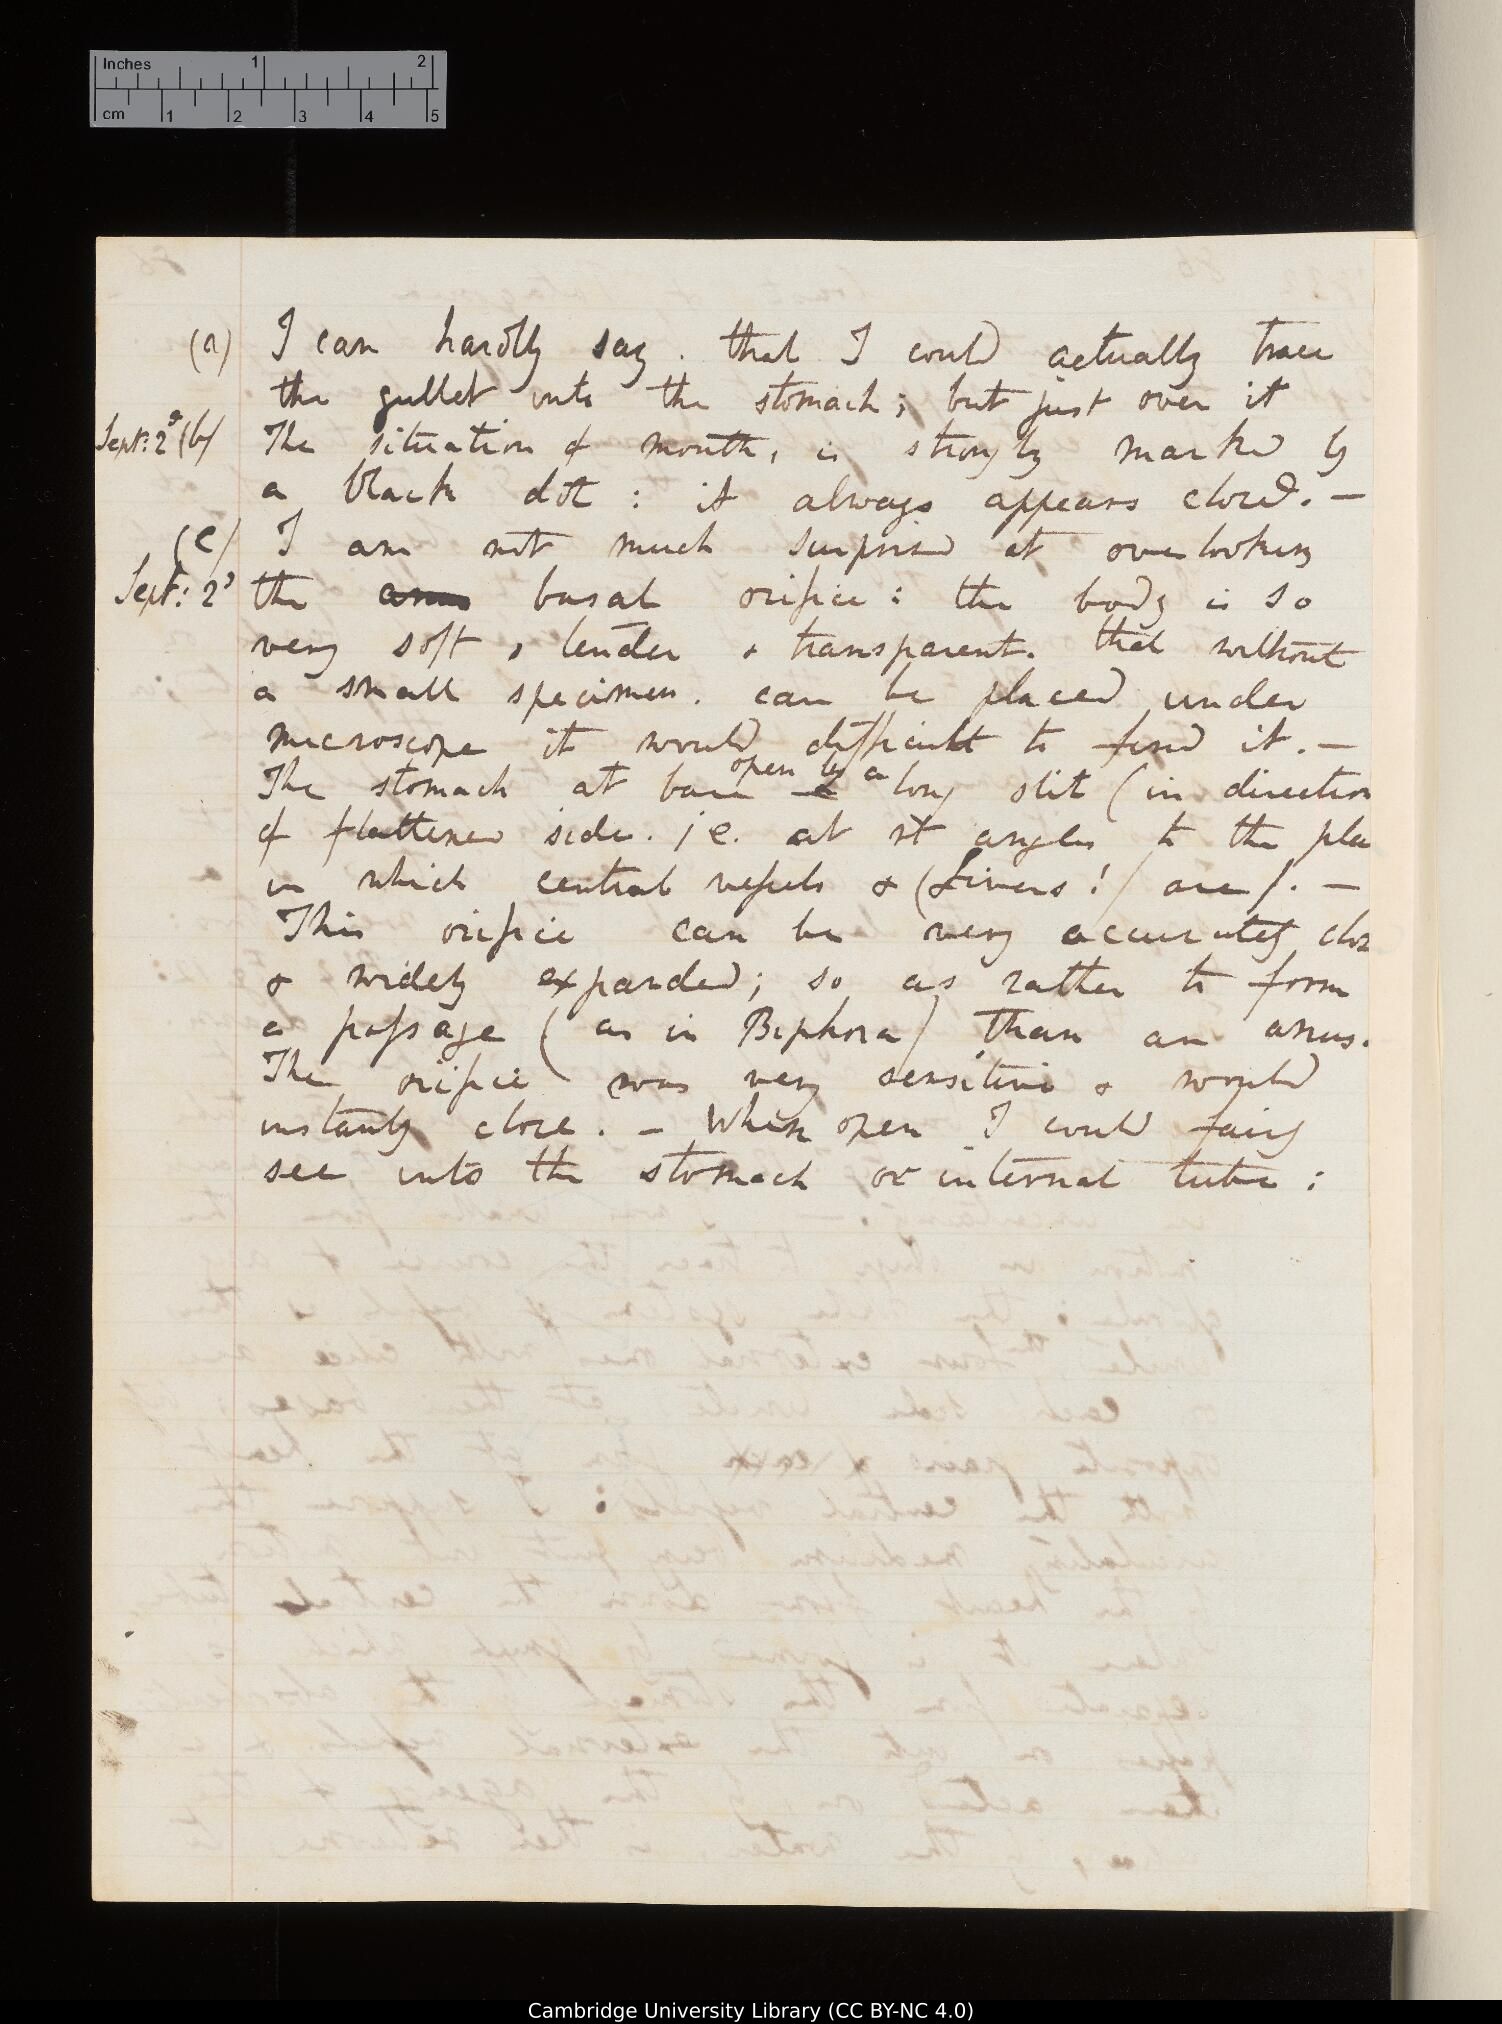 Inches 1 2
cm 1 2 3 4 5
(a) I can hardly say. that I could actually trace
the gullet into the stomach; but just over it
Sept: 2d (b) The situation of mouth, is strongly marked by
a black dot: it always appears closed. —
(c) I am not much surprised at overlooking
Sept: 2d the anus basal orifice: the body is so
very soft & tender & transparent. that without
a small specimen. can be placed under
microscope it would difficult to find it. —
open by a
The stomach at base long slit (in direction
of flattened side. i e. at rt angles to the pla
in which central vessels & (Livers!) are). —
This orifice can be very accurately clos
& widely expanded; so as rather to form
a passage (as in Biphora) than an anus.
The orifice was very sensitive & would
instantly close. — When open I could fairly
see into the stomach or internal tube:
Cambridge University Library (CC BY-NC 4.0)